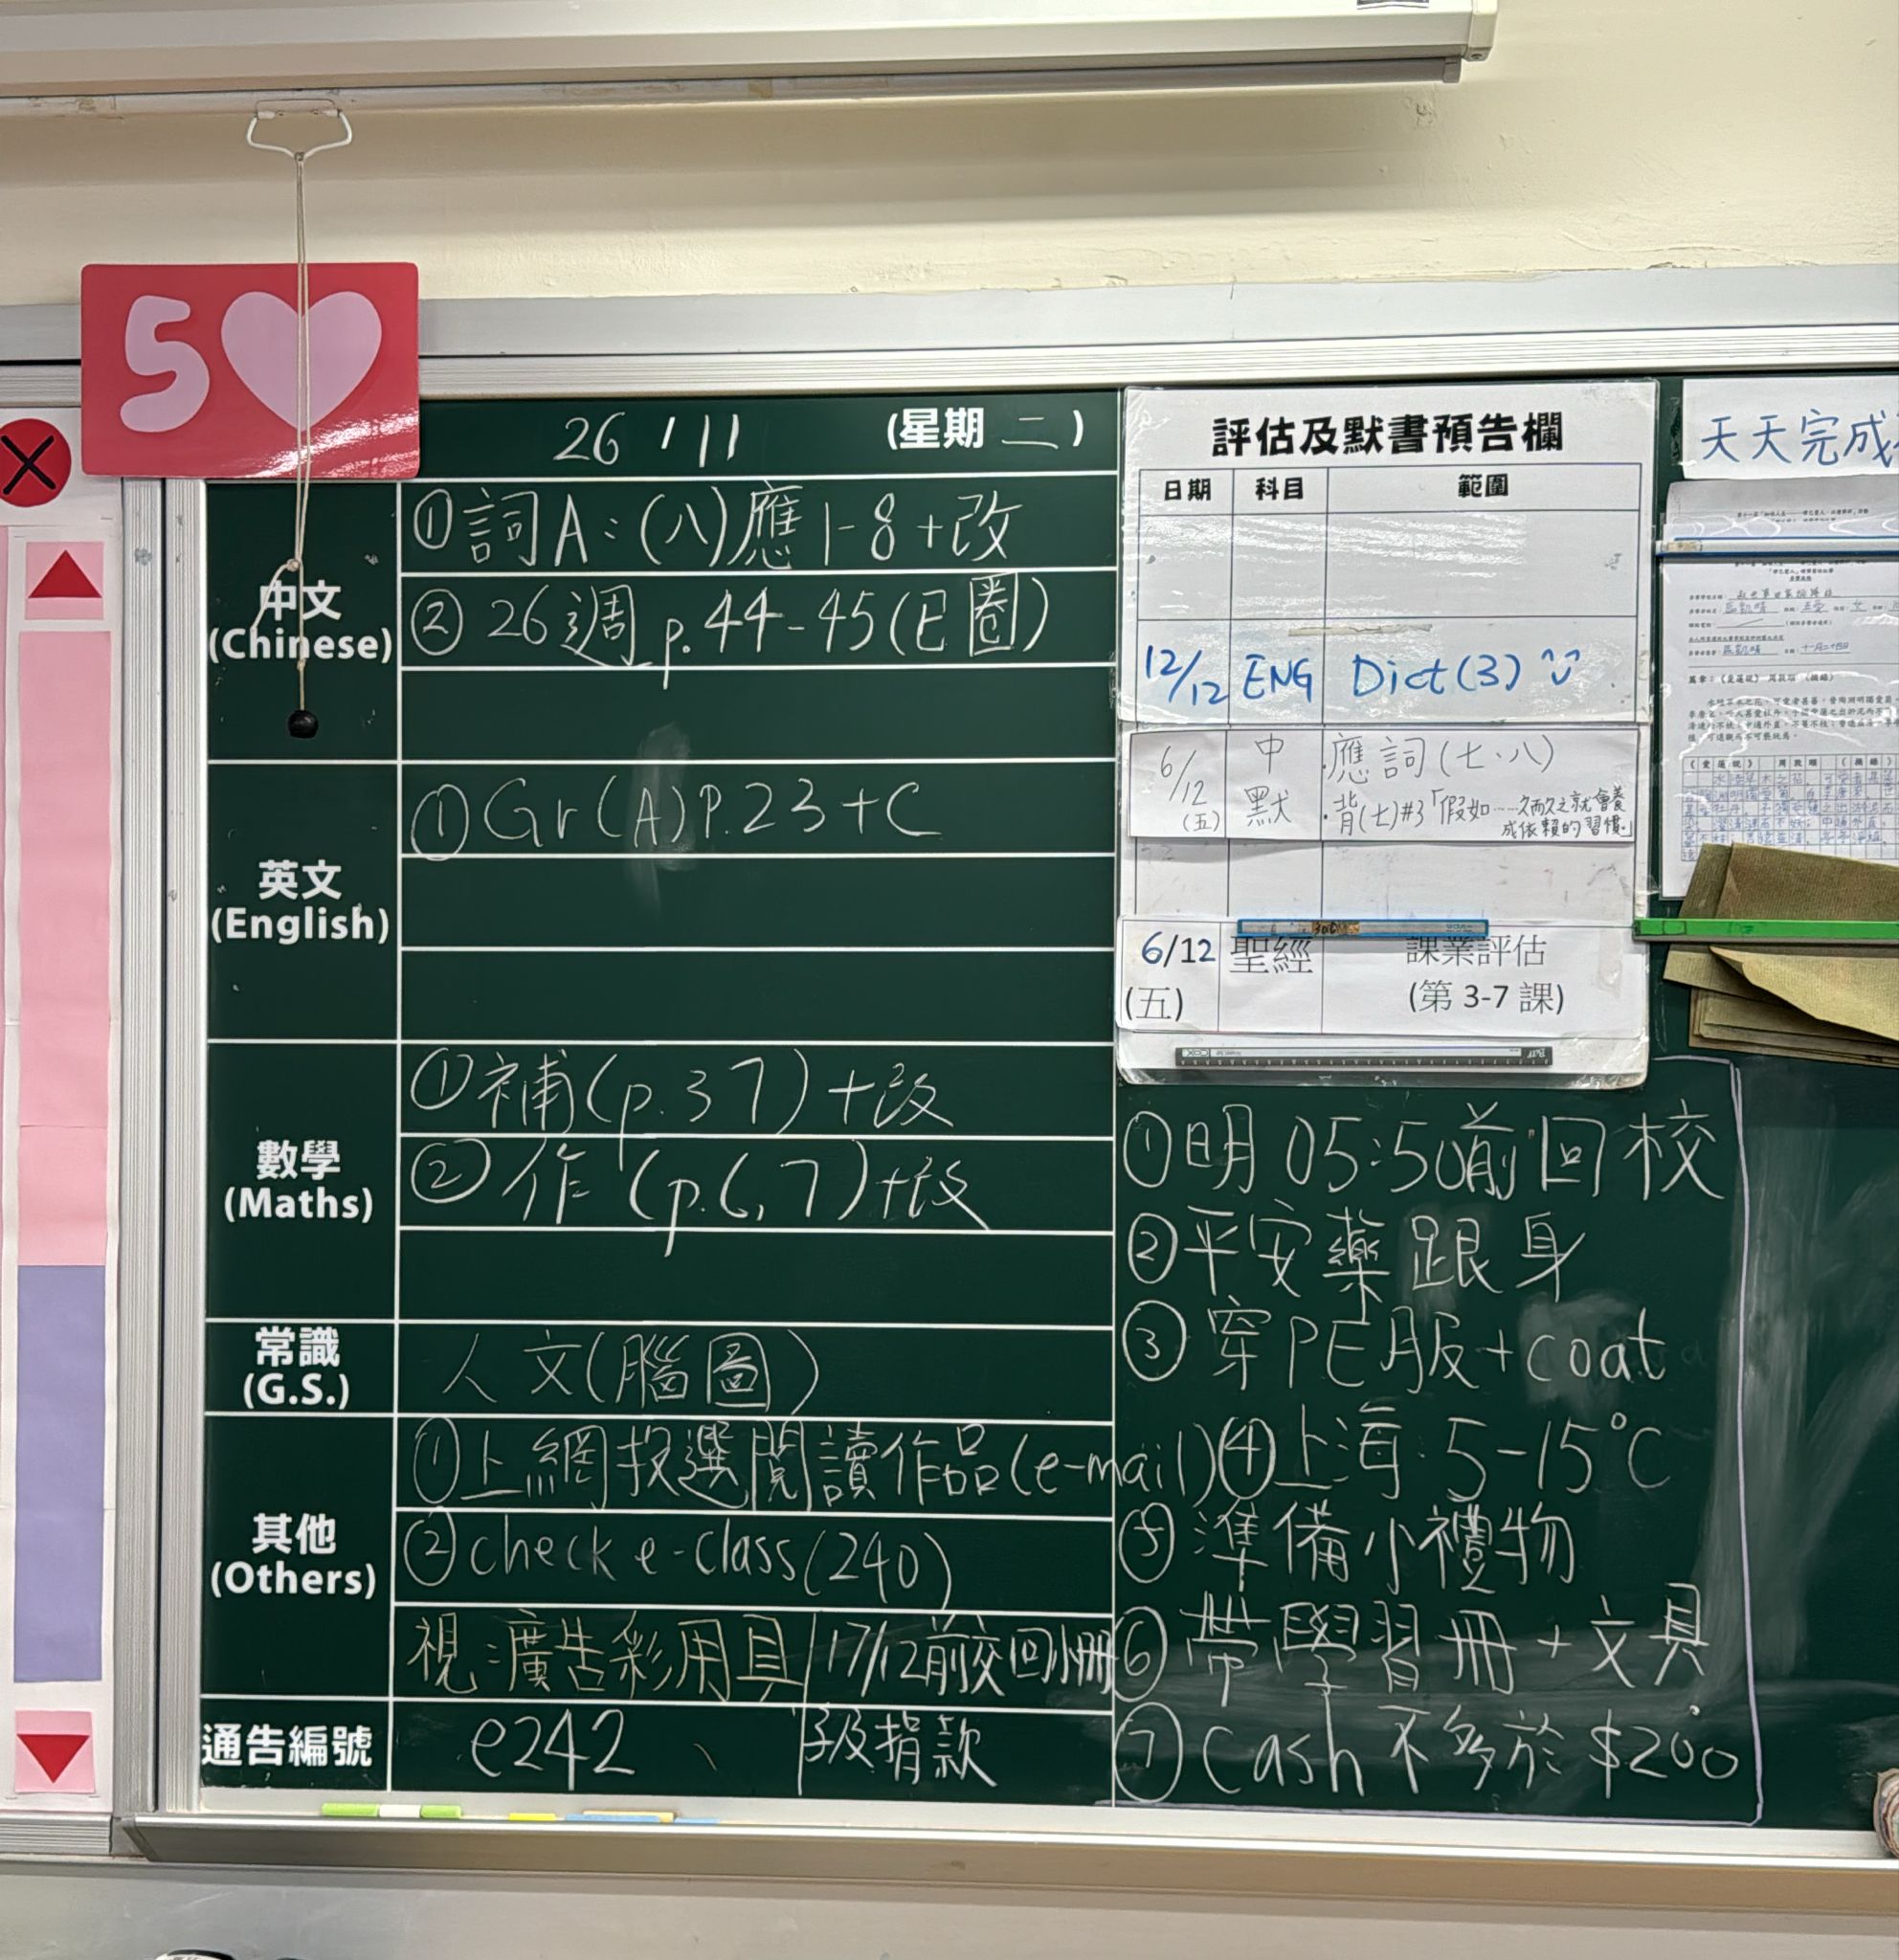 5
26/11 (星期 二)
中文
(Chinese)
①詞A:(八)應1-8+改
②26週 p.44-45(已圈)
英文
(English)
①Gr(A)P.23+C
數學
(Maths)
①補(p.37)+改
②作(p.6,7)+改
常識
(G.S.)
人文(腦圖)
其他
(Others)
①上網投選閱讀作品(e-mail)
②check e-class(240)
視:廣告彩用具|17/12前交回小冊
通告編號
e242、
捐款
評估及默書預告欄
日期 科目 範圍
12/12 ENG Dict(3)
6/12(五) 中默 ·應詞(七、八)
·背(七)#3「假如……久而久之就會養
成依賴的習慣。」
6/12 聖經 課業評估
(五) (第 3-7 課)
①明05:50前回校
②平安藥跟身
③穿PE服+coat
④上海:5-15°C
⑤準備小禮物
⑥帶學習冊+文具
⑦Cash不多於$200
天天完成